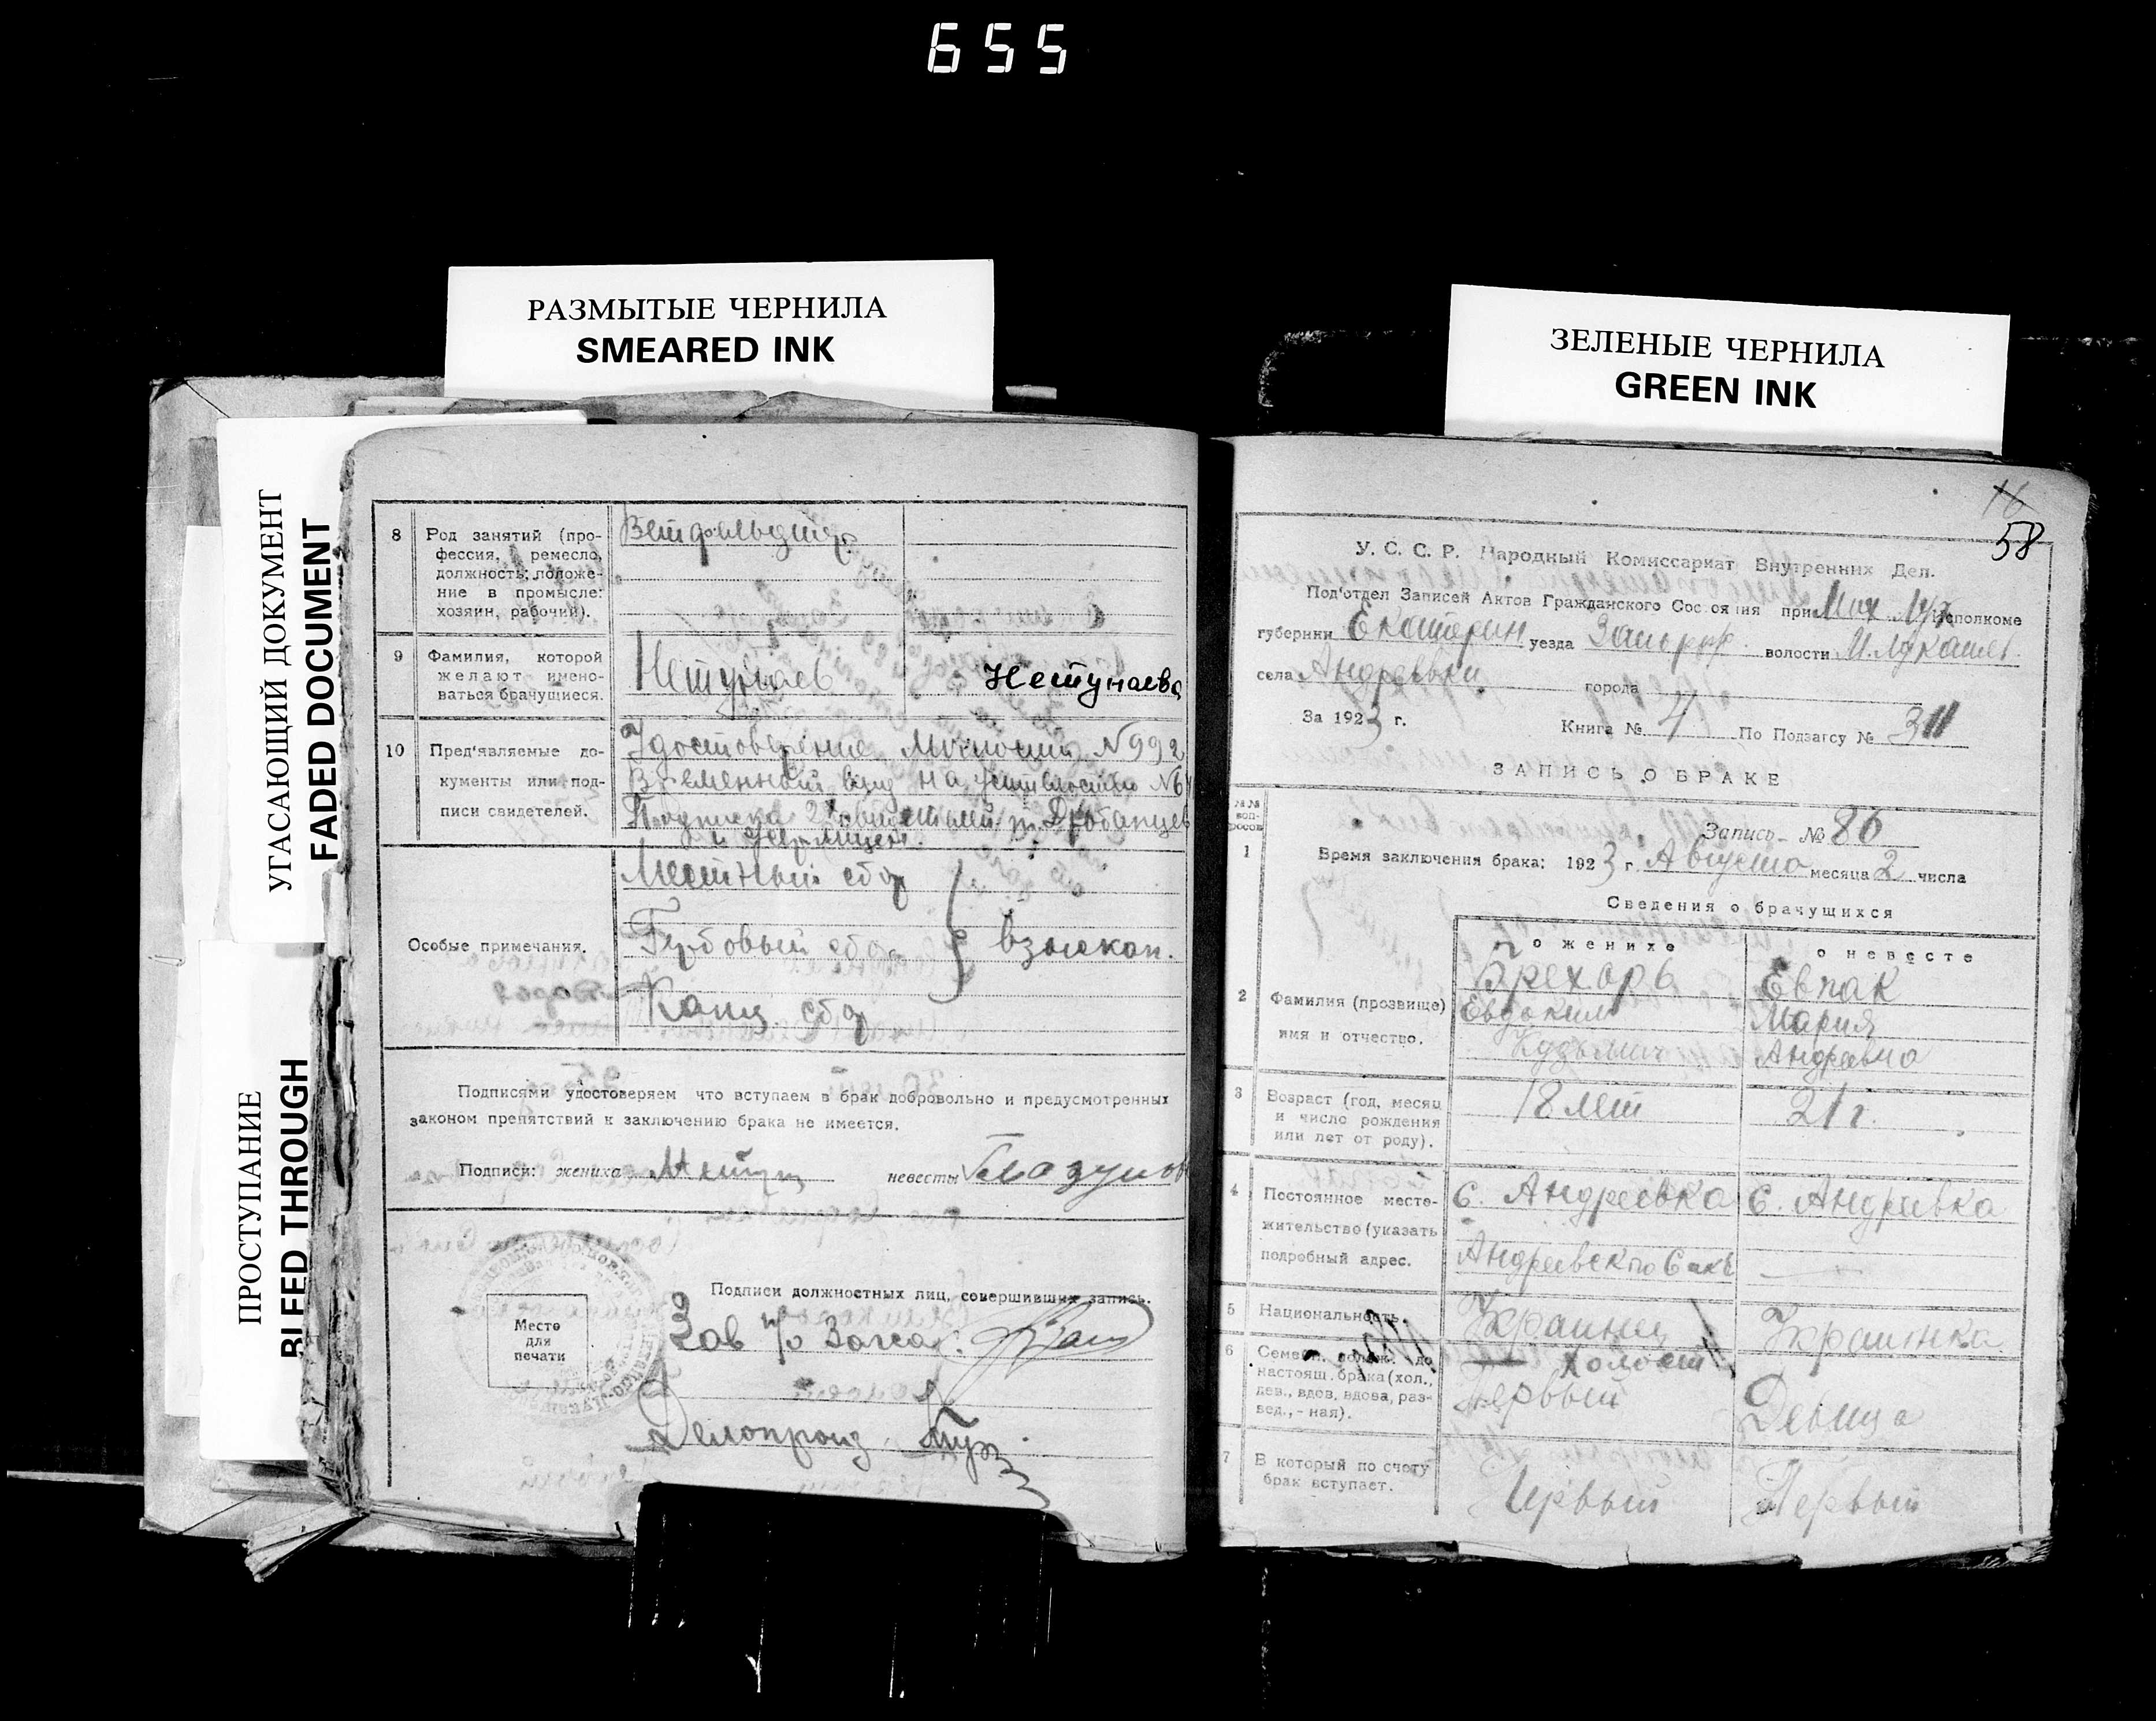 655
РАЗМЫТЫЕ ЧЕРНИЛА
SMEARED INK
ЗЕЛЕНЫЕ ЧЕРНИЛА
GREEN INK
УГАСАЮЩИЙ ДОКУМЕНТ
FADED DOCUMENT
ПРОСТУПАНИЕ
BLEED THROUGH
8 Род занятий (про-
фессия, ремесло,
должность; положе-
ние в промысле:
хозяин, рабочий).
Ветфельдшер
9 Фамилия, которой
желают имено-
ваться брачущиеся.
Нетунаев Нетунаева
10 Пред'являемые до-
кументы или под-
писи свидетелей.
Удостоверение Личности N 992
Временный вид на жительство N6
Подписка 2х свидетелей
Особые примечания.
Местный сбор
Гербовый сбор взыскан.
Канц сбор
Подписями удостоверяем что вступаем в брак добровольно и предусмотренных
законом препятствий к заключению брака не имеется.
Подписи: жениха невесты
Подписи должностных лиц, совершивших запись.
Место
для
печати
Зав п/о Загса:
Делопроиз.
16
58
У. С. С. Р. Народный Комиссариат Внутренних Дел.
Под'отдел Записей Актов Гражданского Состояния при Мих. Лук Исполкоме
губернии Екатерин уезда Запорож. волости М. Лукашев.
села Андреевки города
За 1923 г.
Книга № 4 По Подзагсу №
ЗАПИСЬ О БРАКЕ
№№
воп-
росов
Запись № 86
1 Время заключения брака: 1923 г. Августа месяца 2 числа
Сведения о брачущихся
о женихе о невесте
2 Фамилия (прозвище)
имя и отчество.
Брехарь Евпак
Евдоким Мария
Кузьмич Андреевна
3 Возраст (год, месяц
и число рождения
или лет от роду).
18 лет 21 г.
4 Постоянное место-
жительство (указать
подробный адрес.
С. Андреевка С. Андреевка
Андреевского
5 Национальность.
Украинец Украинка
6 Семейн. полож. до
настоящ. брака (хол.,
дев., вдов, вдова, раз-
вед., - ная).
Холост
Первый
Девица
7 В который по счету
брак вступает.
Первый Первый